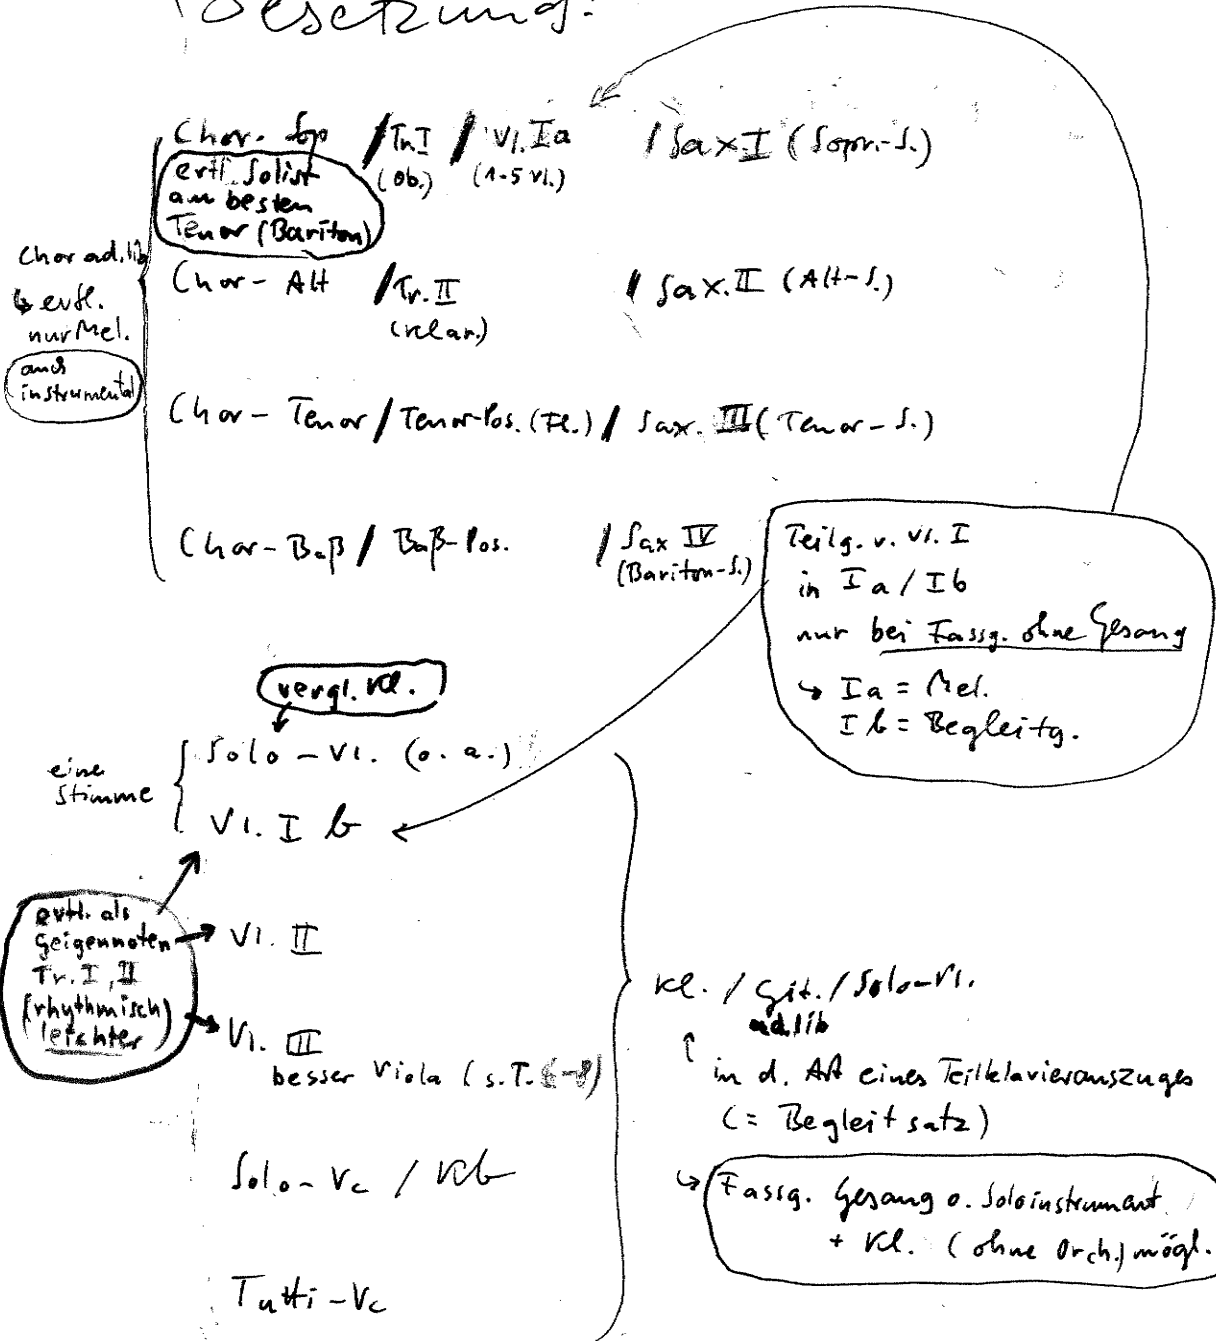 Besetzung:
Chor-Sop / Tr. I / Vl. Ia / Sax I (Sopr.-S.)
(Ob.) (1-5 Vl.)
evtl. Solist
am besten
Tenor (Bariton)
Chor ad. lib
↳ evtl.
nur Mel.
auch
instrumental
Chor-Alt / Tr. II / Sax. II (Alt-S.)
(Klar.)
Chor-Tenor / Tenor-Pos. (Fl.) / Sax. III (Tenor-S.)
Chor-Baß / Baß-Pos. / Sax IV
(Bariton-S.)
Teilg. v. Vl. I
in Ia / Ib
nur bei Fassg. ohne Gesang
↳ Ia = Mel.
Ib = Begleitg.
vergl. Kl.
eine
Stimme
Solo-Vl. (o. a.)
Vl. I b
evtl. als
Geigennoten
Tr. I, II
(rhythmisch)
leichter
Vl. II
Vl. III
besser Viola (s. T. 6-8)
Solo-Vc / Kb
Tutti-Vc
Kl. / Git. / Solo-Vl.
ad. lib
in d. Art eines Teilklavierauszuges
(= Begleitsatz)
↳ Fassg. Gesang o. Soloinstrument
+ Kl. (ohne Orch.) mögl.